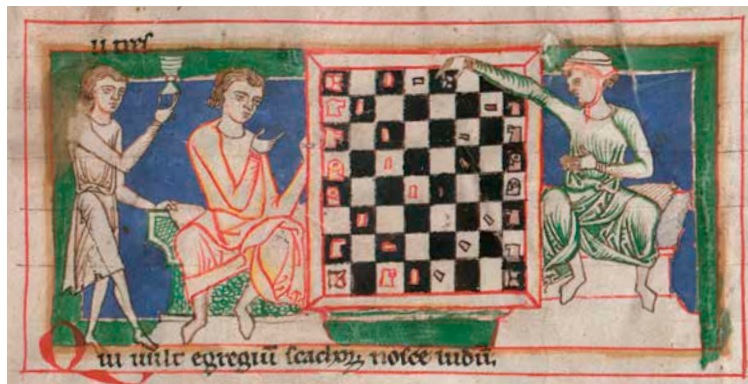 Qui uult egregiū scachoꝝ nosce ludū.